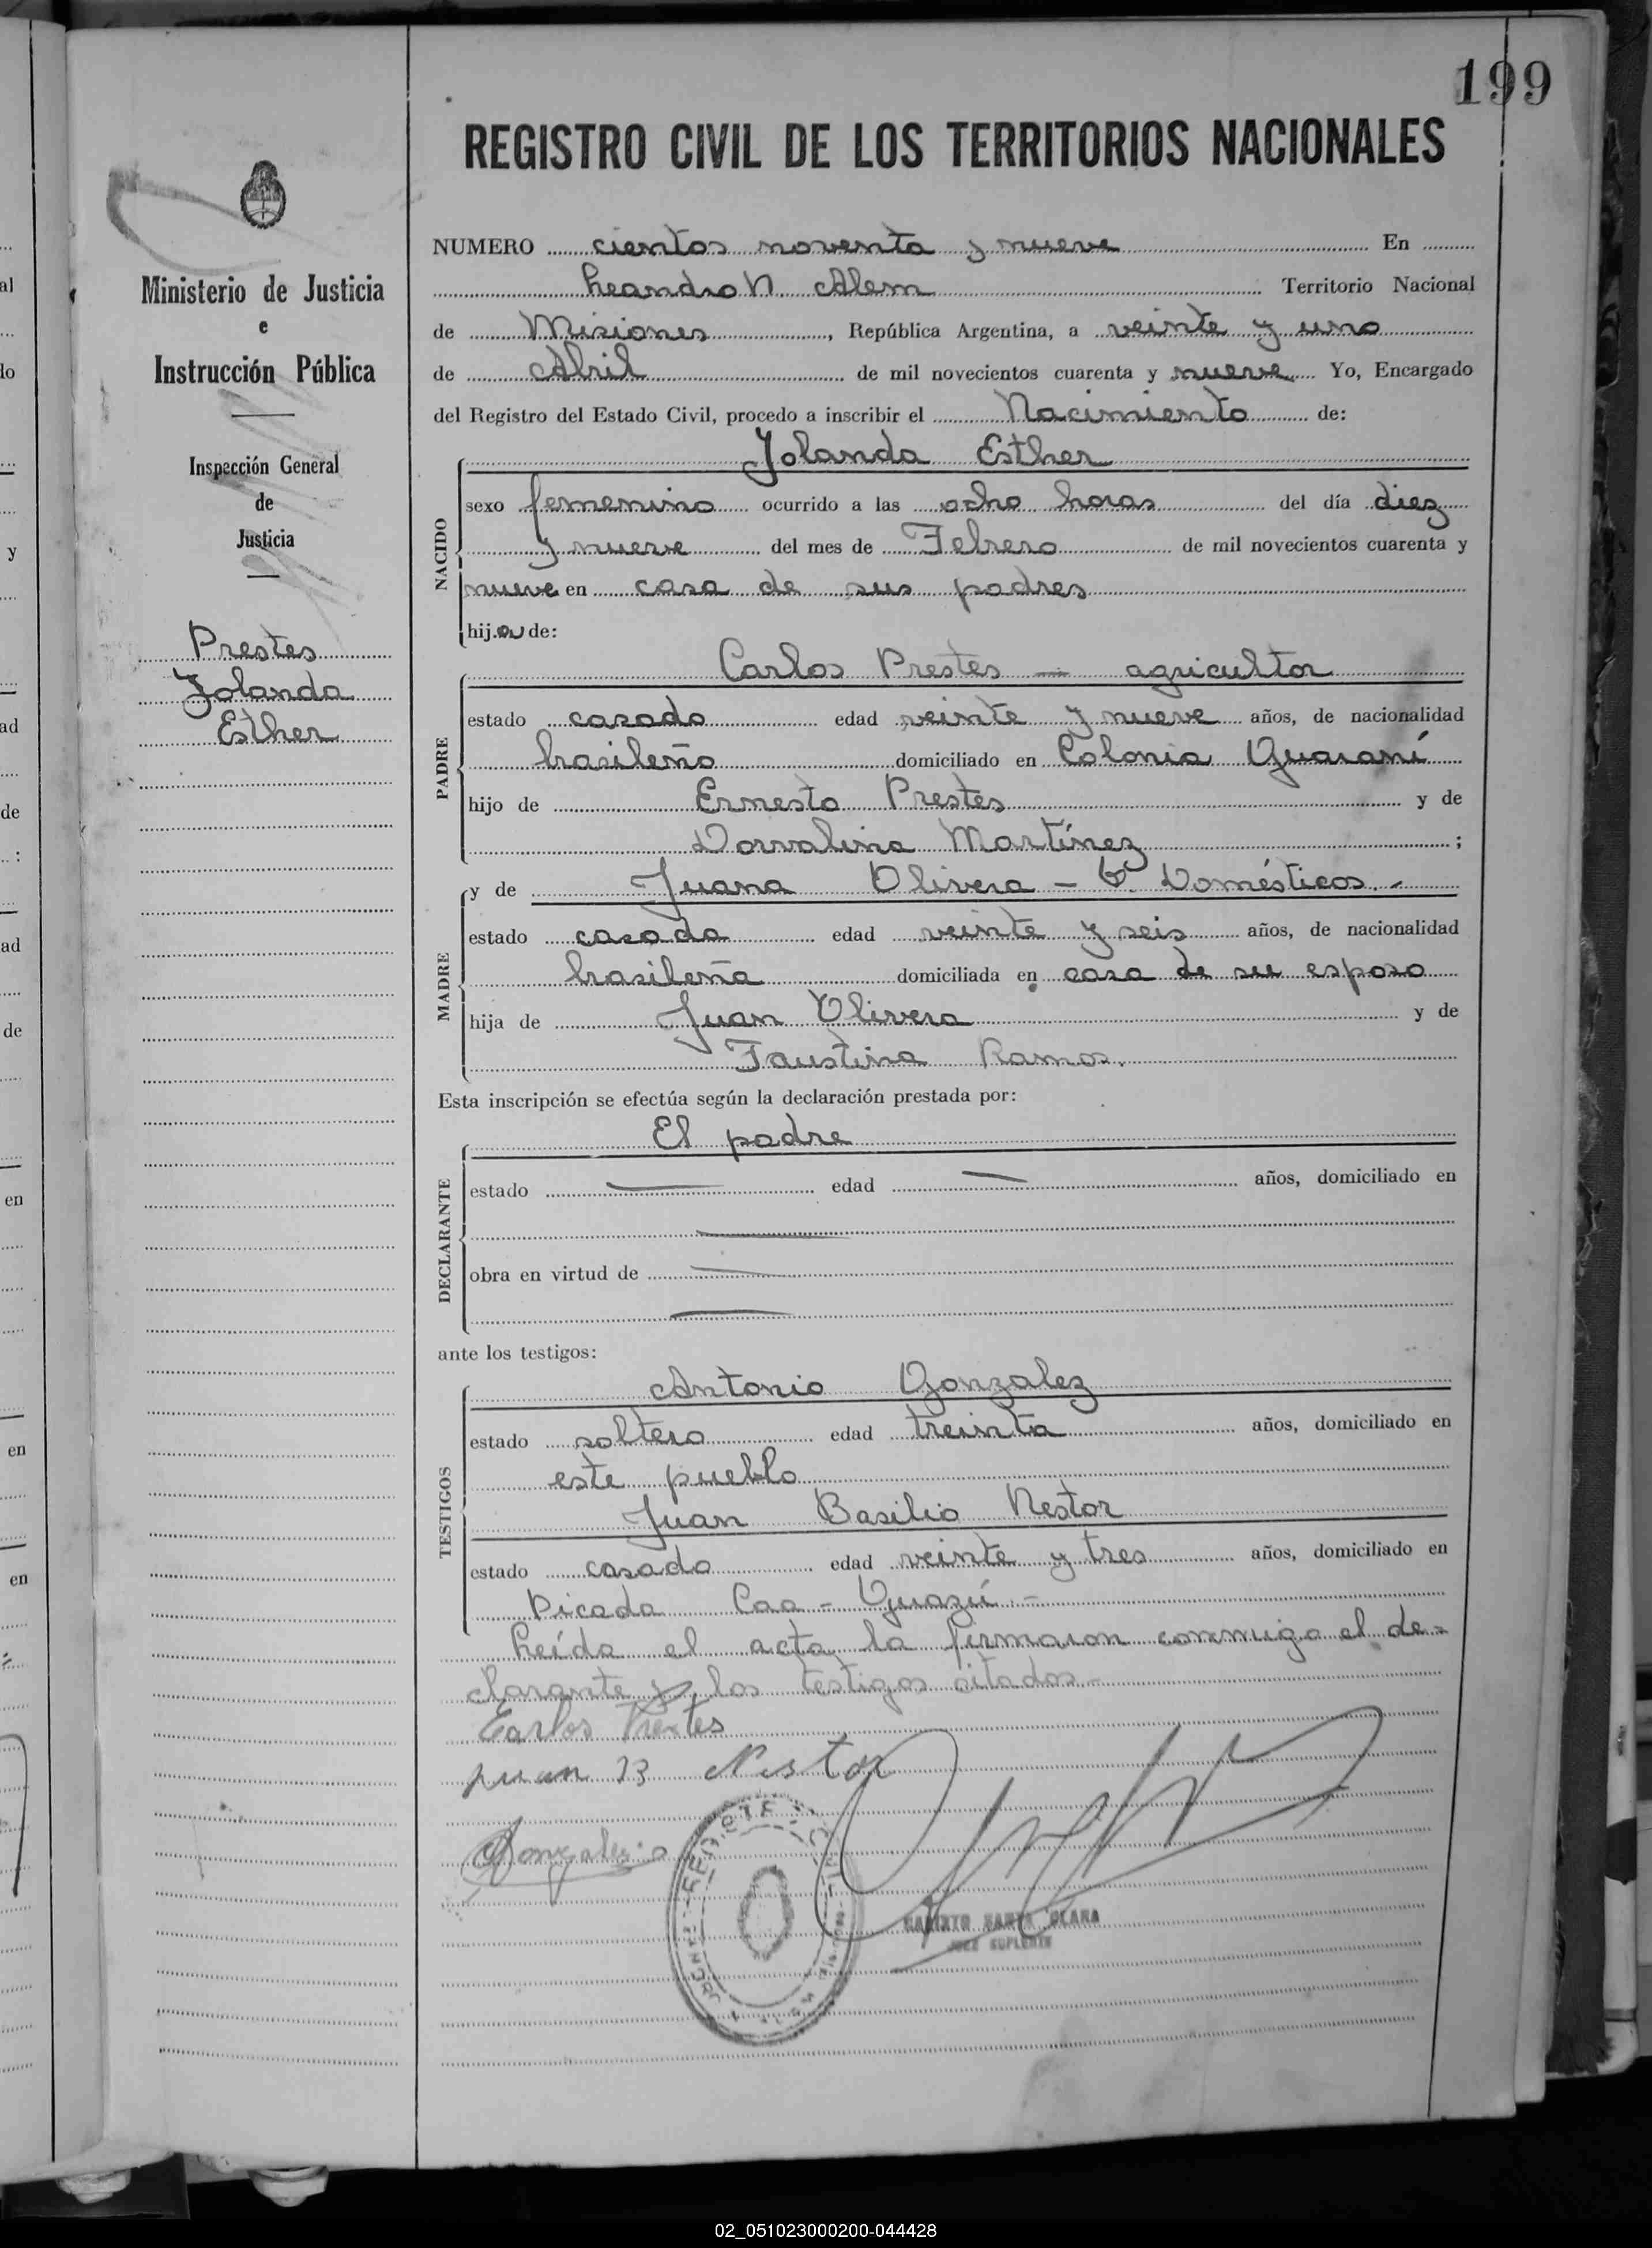 199
REGISTRO CIVIL DE LOS TERRITORIOS NACIONALES
NUMERO cientos noventa y nueve En
Leandro N. Alem Territorio Nacional
de Misiones, República Argentina, a veinte y uno
de Abril de mil novecientos cuarenta y nueve Yo, Encargado
del Registro del Estado Civil, procedo a inscribir el Nacimiento de:
Ministerio de Justicia
e
Instrucción Pública
Inspección General
de
Justicia
Prestes
Yolanda
Esther
NACIDO
Yolanda Esther
sexo femenino ocurrido a las ocho horas del día diez
y nueve del mes de Febrero de mil novecientos cuarenta y
nueve en casa de sus padres
hija de:
PADRE
Carlos Prestes — agricultor
estado casado edad veinte y nueve años, de nacionalidad
brasileño domiciliado en Colonia Guaraní
hijo de Ernesto Prestes y de
Dorvalina Martínez ;
MADRE
y de Juana Olivera - Q. Domésticos.-
estado casada edad veinte y seis años, de nacionalidad
brasileña domiciliada en casa de su esposo
hija de Juan Olivera y de
Faustina Ramos.
Esta inscripción se efectúa según la declaración prestada por:
DECLARANTE
El padre
estado — edad — años, domiciliado en
—
obra en virtud de —
—
ante los testigos:
TESTIGOS
Antonio Gonzalez
estado soltero edad treinta años, domiciliado en
este pueblo
Juan Basilio Nestor
estado casado edad veinte y tres años, domiciliado en
Picada Caa-Guazú.-
Leída el acta la firmaron conmigo el de-
clarante y los testigos citados.-
Carlos Prestes
juan B Nestor
JUEZ SUPLENTE
02_051023000200-044428